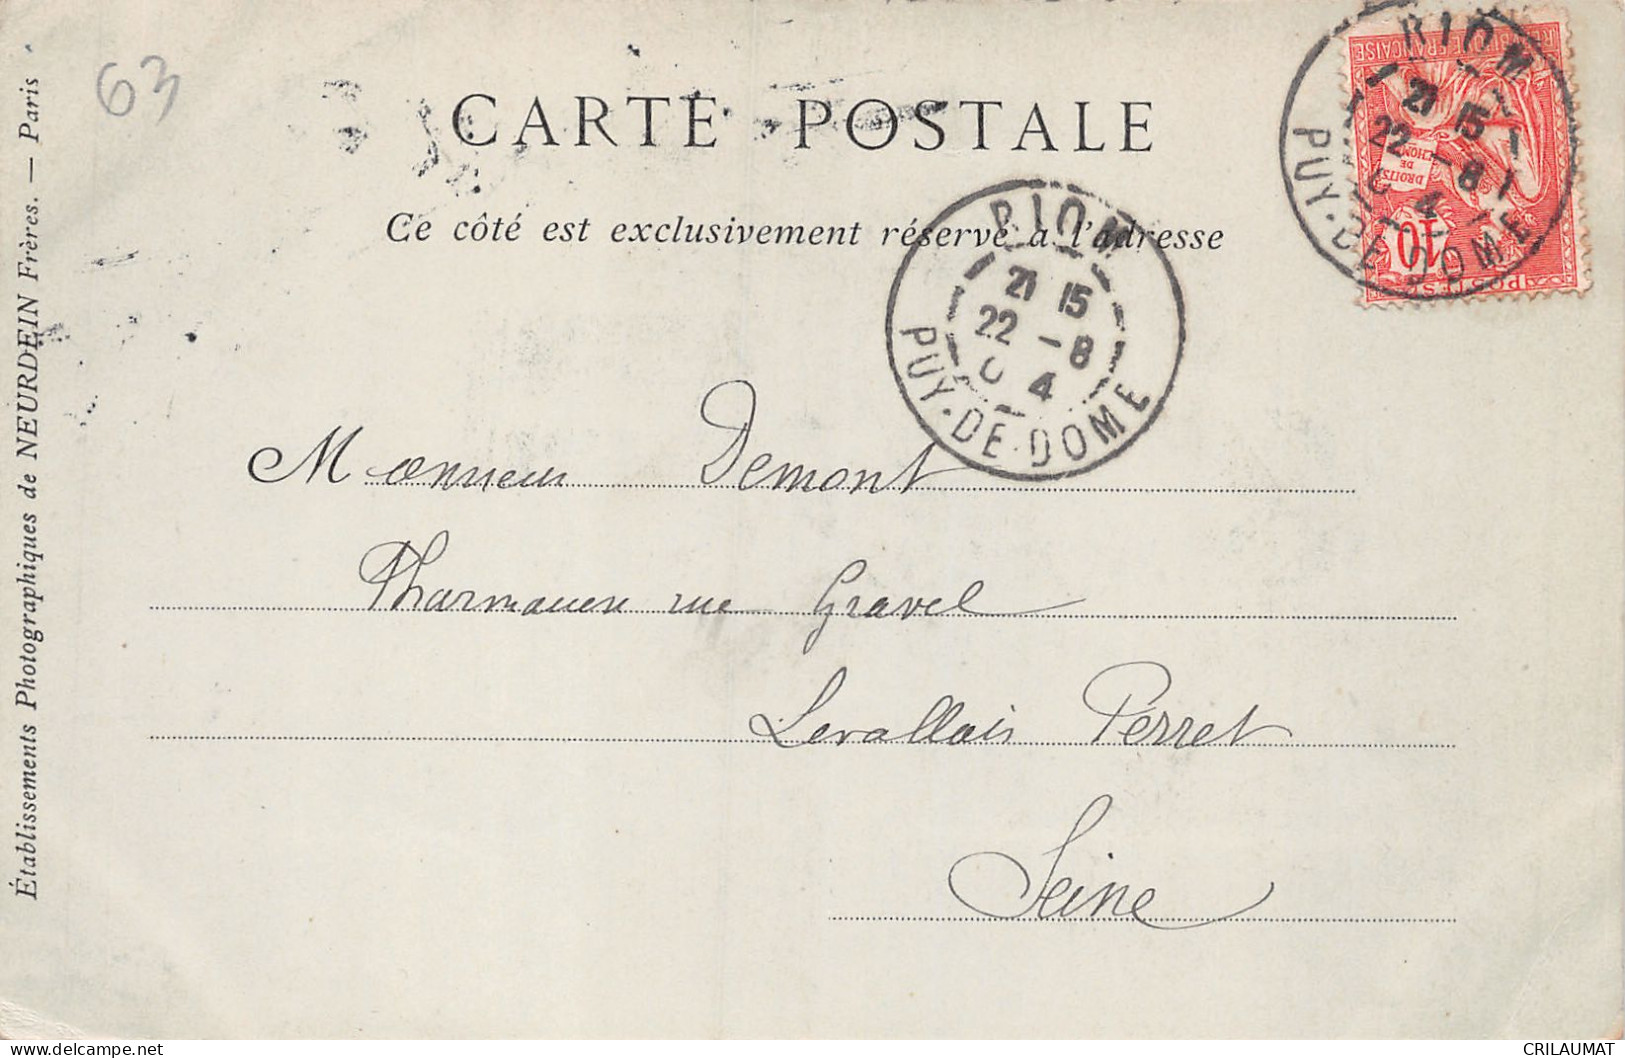 63
CARTE POSTALE
Ce côté est exclusivement réservé à l'adresse
RIOM
21 15
22 -8
0 4
PUY-DE-DOME
RIOM
21 15
22 -8
0 4
PUY-DE-DOME
RÉPUBLIQUE FRANÇAISE
DROITS
DE
L'HOMME
10
POSTES
Monsieur Demont
Pharmacien rue Gravel
Levallois Perret
Seine
Établissements Photographiques de NEURDEIN Frères. — Paris
CRILAUMAT